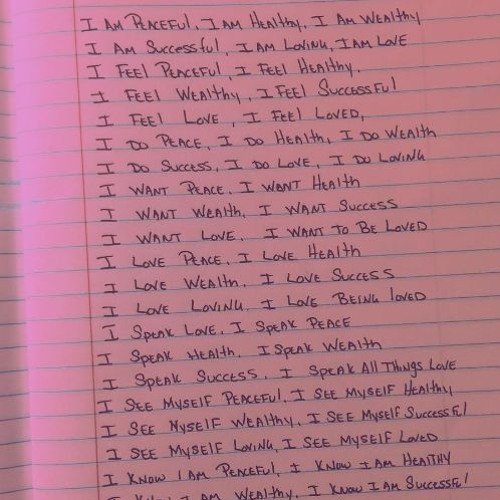 I Am Peaceful, I Am Healthy, I Am Wealthy
I Am Successful, I Am Loving, I Am Love
I Feel Peaceful, I Feel Healthy.
I Feel Wealthy, I Feel Successful
I Feel Love, I Feel Loved,
I Do Peace, I Do Health, I Do Wealth
I Do Success, I Do Love, I Do Loving
I Want Peace. I Want Health
I Want Wealth, I Want Success
I Want Love. I Want To Be Loved
I Love Peace, I Love Health
I Love Wealth, I Love Success
I Love Loving, I Love Being Loved
I Speak Love, I Speak Peace
I Speak Health. I Speak Wealth
I Speak Success, I Speak All Things Love
I See Myself Peaceful, I See Myself Healthy
I See Myself Wealthy, I See Myself Successful
I See Myself Loving, I See Myself Loved
I Know I Am Peaceful, I Know I Am Healthy
I Know I Am Wealthy, I Know I Am Successful